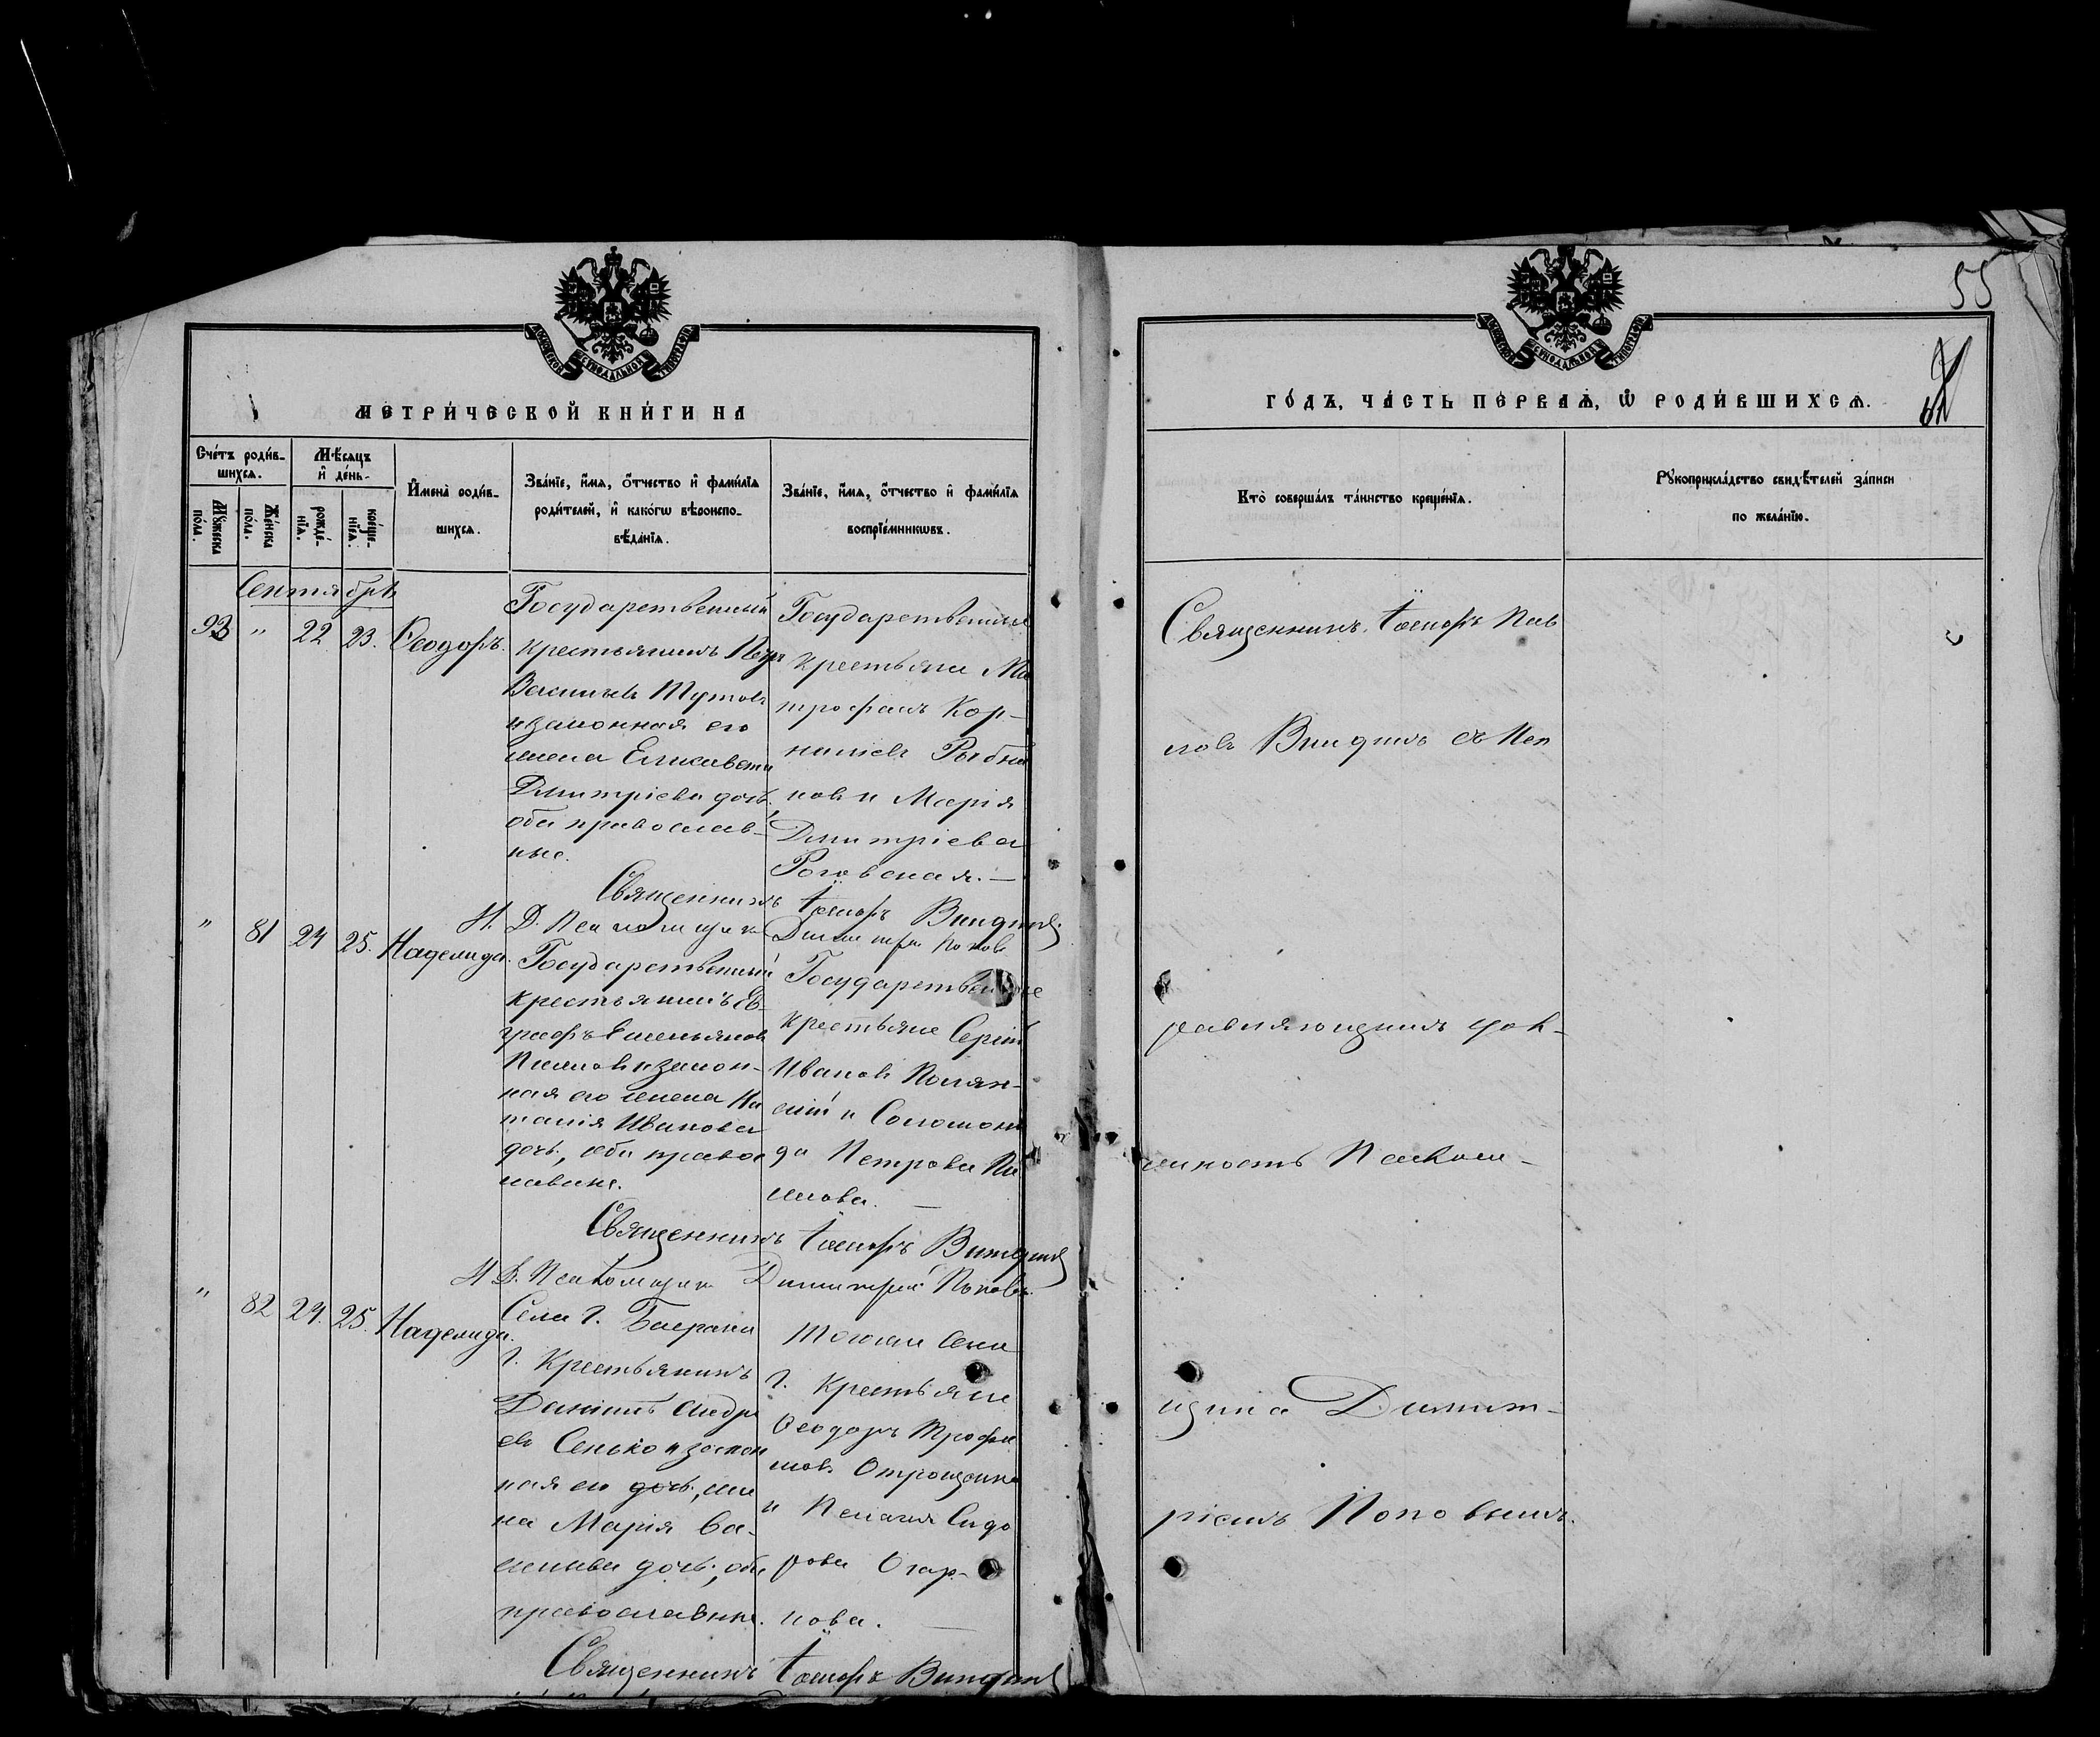 55
МЕТРИЧЕСКОЙ КНИГИ НА
ГОДЪ, ЧАСТЬ ПЕРВАЯ, Ѡ РОДИВШИХСЯ.
Счетъ родив-
шихся.
Мѣсяцъ
и день.
Мужеска
пола.
Женска
пола.
рожде-
нія.
креще-
нія.
Имена родив-
шихся.
Званіе, имя, отчество и фамилія
родителей, и какогѡ вѣроиспо-
вѣданія.
Званіе, имя, отчество и фамилія
воспріемникѡвъ.
Кто совершалъ таинство крещенія.
Рукоприкладство свидѣтелей записи
по желанію.
Сентябрь
93 " 22 23. Ѳеодоръ.
Государственный
крестьянинъ Петръ
Васильевъ Тутовъ
и законная его
жена Елисавета
Дмитріева дочь,
оба православ-
ные.
Государственные
крестьяне Ми
трофанъ Кор-
ниліевъ Рыбни
ковъ и Марія
Дмитріева
Роговская. —
Священникъ Іосифъ
Димитрій Поповъ
" 81 24 25. Надежда.
Государственный
крестьянинъ Ев-
графъ Емельяновъ
и закон-
ная его жена На
талія Иванова
дочь, оба правос
лавные.
Государственные
крестьяне Сергій
Ивановъ Полян-
скій и Соломони
да Петрова
мова. —
Священникъ Іосифъ
И. Д. Псаломщика Димитрій Поповъ
" 82 24. 25. Надежда.
Села Г.
Г. Крестьянинъ
Даніилъ Андре
евъ Сенько и закон
ная его дочь, же
на Марія Ва-
сильева дочь, оба
православные.
Тогожъ села
Г. Крестьяне
Ѳеодоръ Трофи
мовъ Отрощенко
и Пелагія Сидо
рова Огар-
кова. —
Священникъ Іосифъ
Священникъ Іосифъ Пав
ловъ съ Исп
равляющимъ дол-
жность Псалом-
щика Димит-
ріемъ Поповымъ.